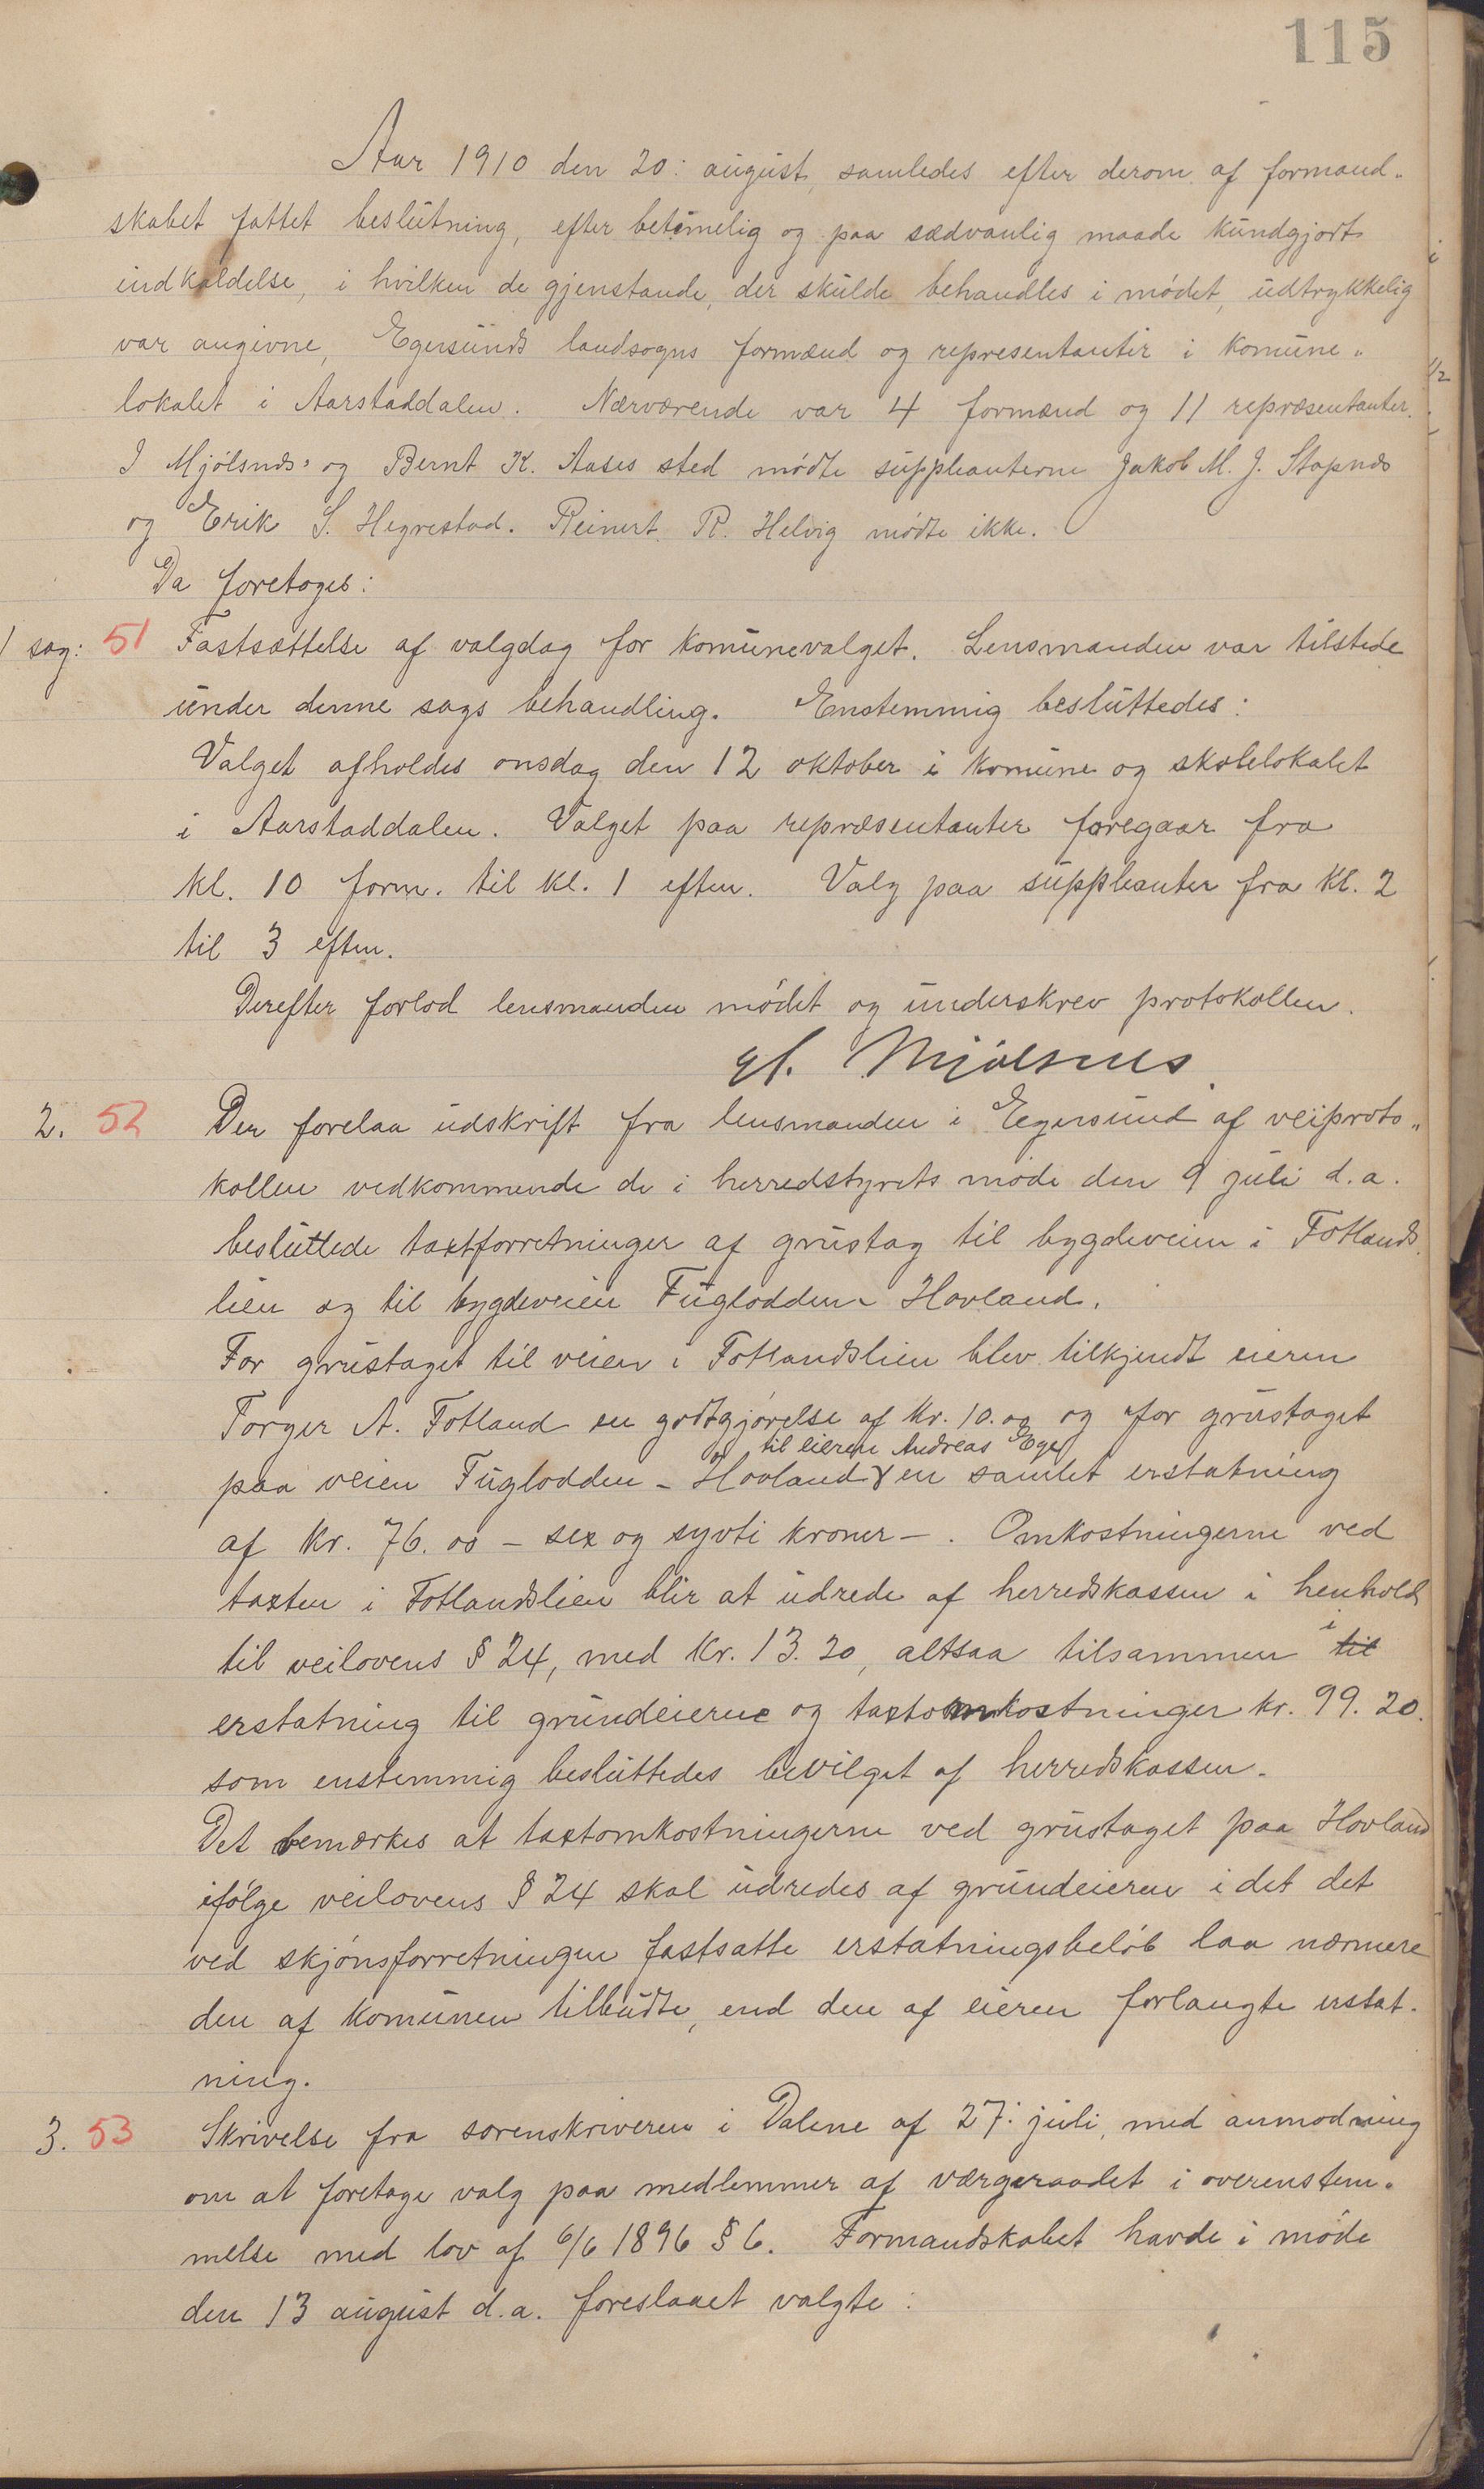 115
Aar 1910 den 20: august, samledes efter derom af formand-
skabet fattet beslutning, efter betimelig og paa sædvanlig maade kundgjort
indkaldelse, i hvilken de gjenstande, der skulde behandles i mødet, udtrykkelig
var angivne, Egersunds landsogns formænd og representanter i komune-
lokalet i Aarstaddalen. Nærværende var 4 formænd og 11 repræsentanter.
I Mjølsnæs' og Bernt K. Aases sted mødte suppleanterne Jakob M. J. Stapnæs
og Erik S. Hegrestad. Reinert R. Helvig mødte ikke.
Da foretoges:
1 sag: 51 Fastsættelse af valgdag for komunevalget. Lensmanden var tilstede
under denne sags behandling. Enstemmig besluttedes:
Valget afholdes onsdag den 12 oktober i komune og skolelokalet
i Aarstaddalen. Valget paa repræsentanter foregaar fra
kl. 10 form. til kl. 1 efter. Valg paa suppleanter fra kl. 2
til 3 efter.
Derefter forlod lensmanden mødet og underskrev protokollen.
Mjølsnes
2. 52 Der forelaa udskrift fra lensmanden i Egersund af veiproto-
kollen vedkommende de i herredstyrets møde den 9 juli d.a.
besluttede taxtforretninger af grustag til bygdeveien i Fotlands
lien og til bygdeveien Fuglodden - Hovland.
For grustaget til veien i Fotlandslien blev tilkjendt eieren
Torger A. Fotland en godtgjørelse af kr. 10.00 og for grustaget
til eieren Andreas Ege
paa veien Fuglodden - Hovland en samlet erstatning
af kr. 76.00 - sex og syvti kroner -. Omkostningerne ved
taxten i Fotlandslien blir at udrede af herredskassen i henhold
til veilovens § 24, med kr. 13.20, altsaa tilsammen til i
erstatning til grundeierne og taxtomkostninger kr. 99.20.
som enstemmig besluttedes bevilget af herredskassen.
Det bemærkes at taxtomkostningerne ved grustaget paa Hovland
ifølge veilovens § 24 skal udredes af grundeieren i det det
ved skjønsforretningen fastsatte erstatningsbeløb laa nærmere
den af komunen tilbudte, end den af eieren forlangte erstat-
ning.
3. 53 Skrivelse fra sorenskriveren i Dalene af 27: juli, med anmodning
om at foretage valg paa medlemmer af værgeraadet i overenstem-
melse med lov af 6/6 1896 § 6. Formandskabet havde i møde
den 13 august d.a. foreslaaet valgte: